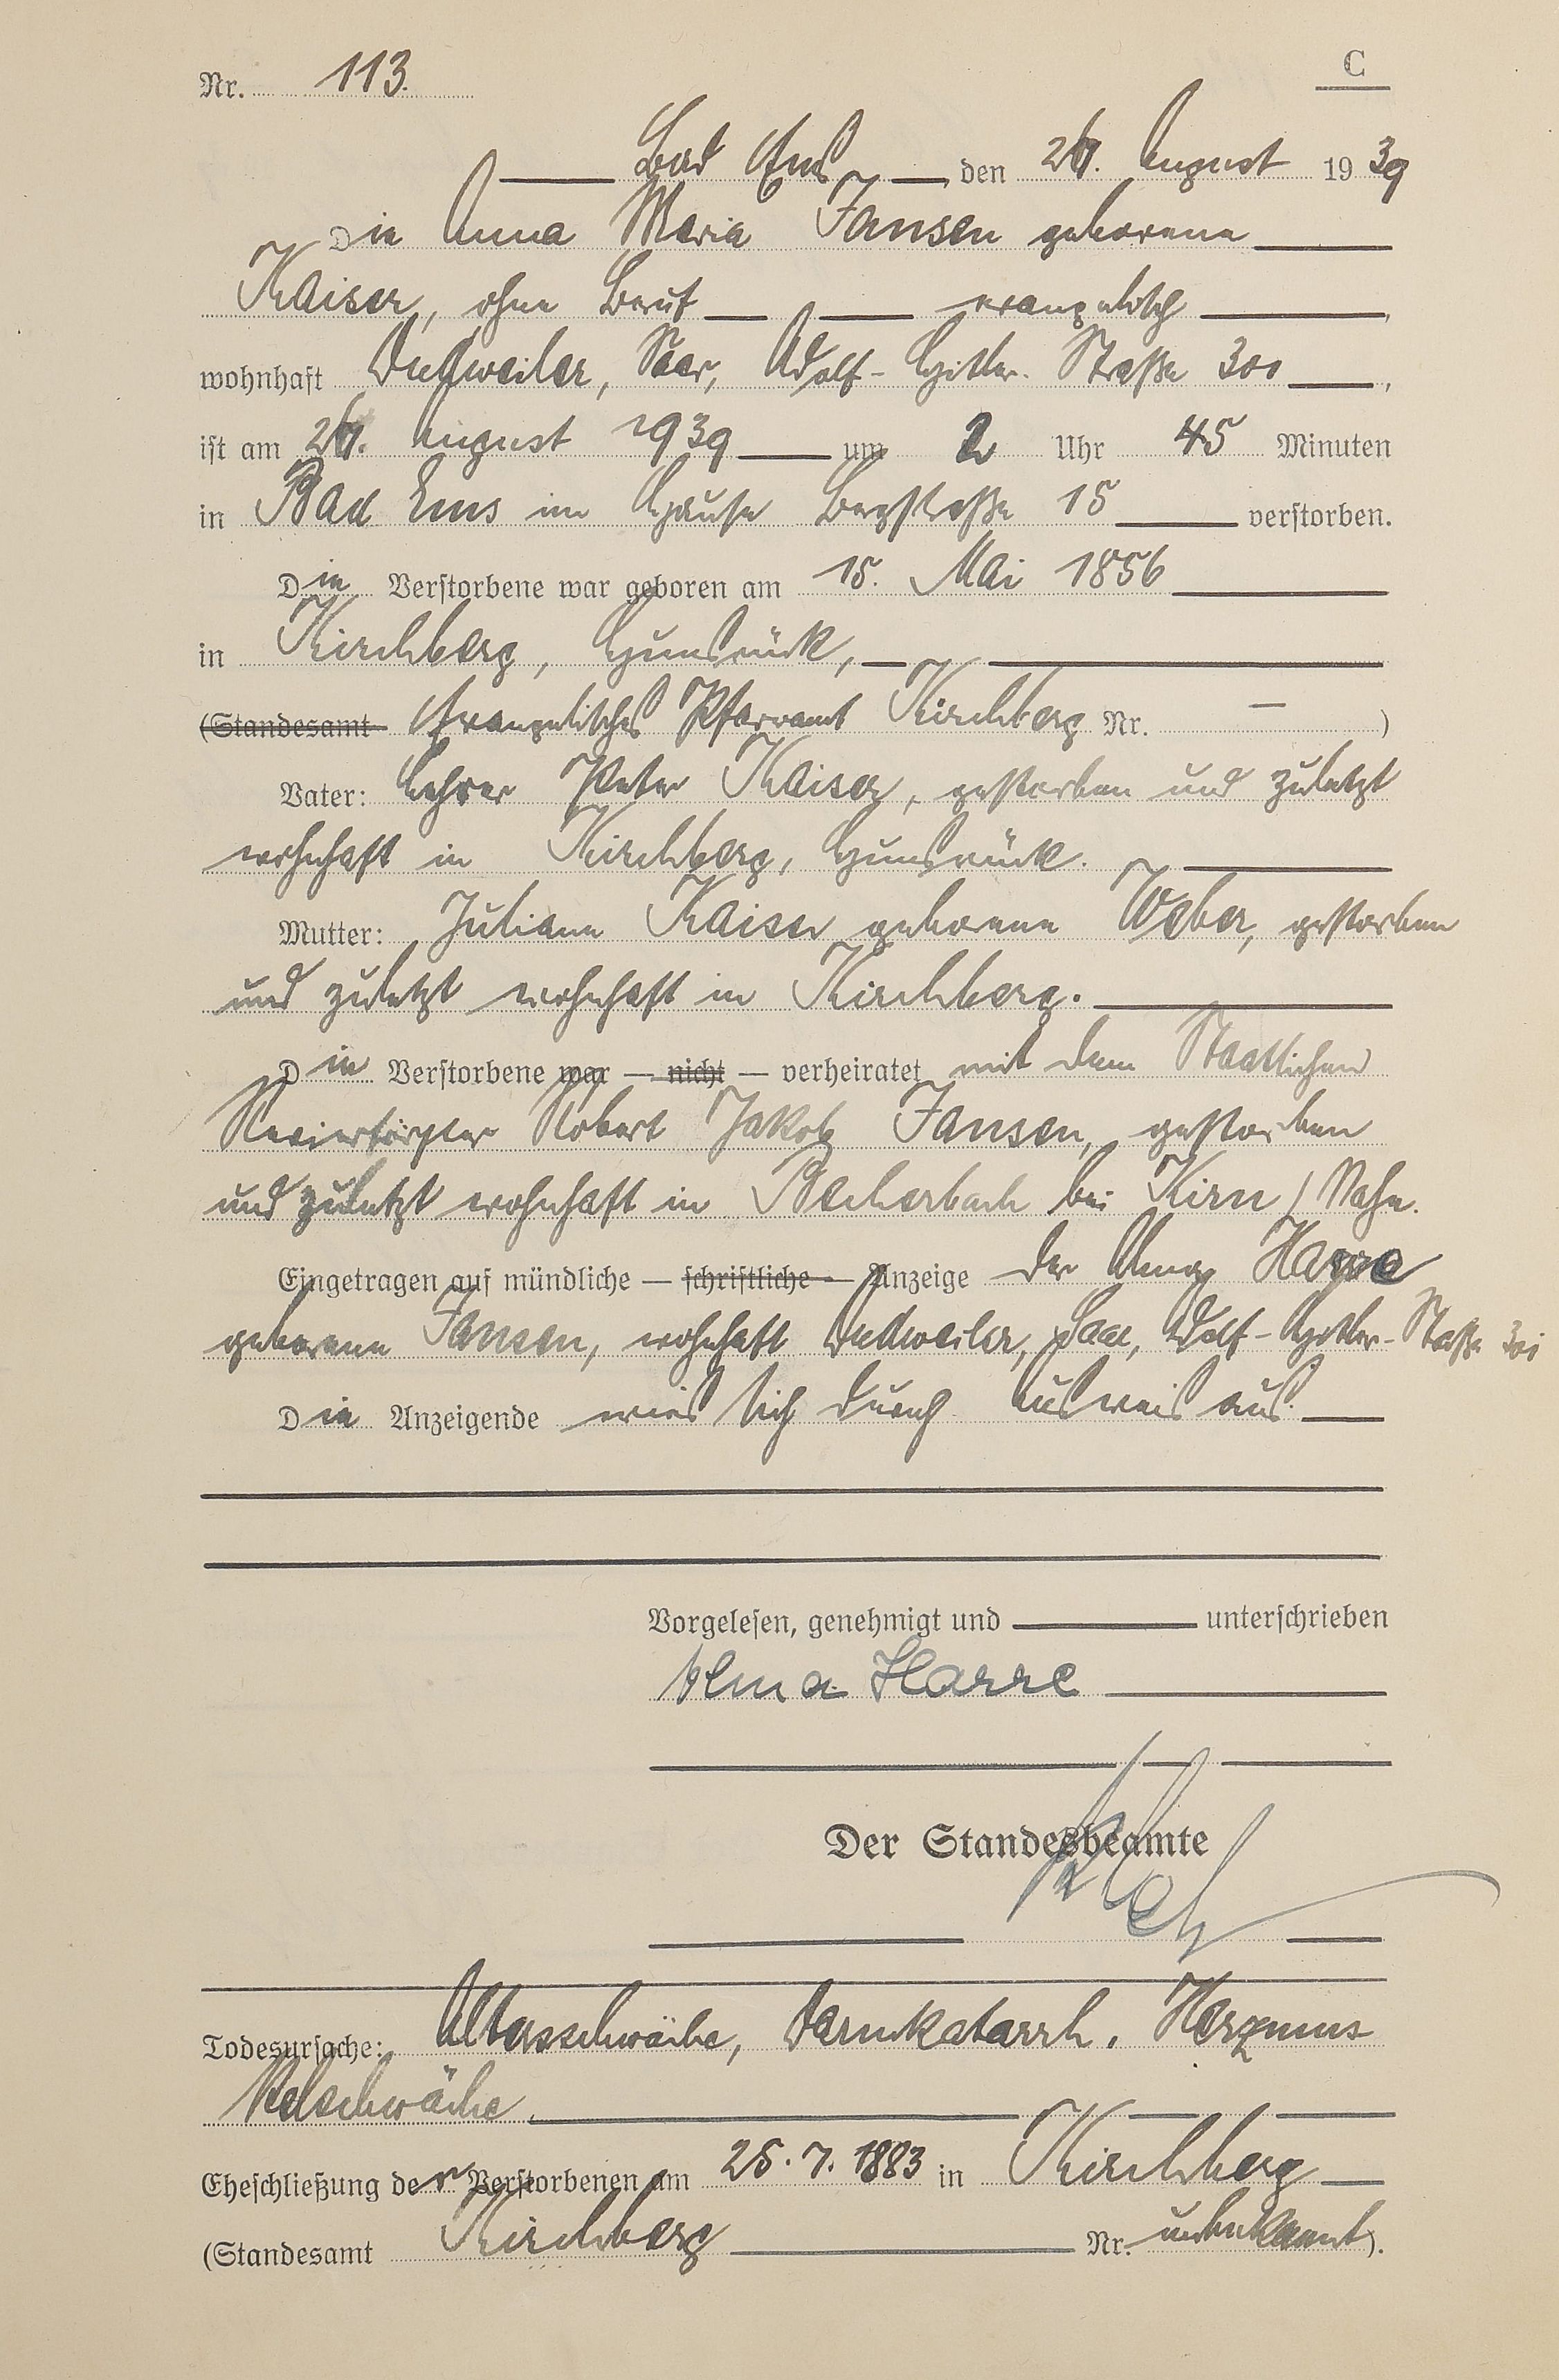 Nr. 113. C
Bad Ems, den August 19 39
Die Anna Maria Jansen geborene
Kaiser, ohne Beruf evangelisch,
wohnhaft Dudweiler, Saar, Adolf-Hitler-Straße,
ist am August 1939 um 2 Uhr 45 Minuten
in Bad Ems im Hause Bergstraße 15 verstorben.
Die Verstorbene war geboren am 15. Mai 1856
in Kirchberg, Hunsrück,
(Standesamt Evangelisches Pfarramt Kirchberg Nr. — )
Vater: Lehrer Peter Kaiser, gestorben und zuletzt
wohnhaft in Kirchberg, Hunsrück.
Mutter: Juliane Kaiser geborene Weber, gestorben
und zuletzt wohnhaft in Kirchberg.
Die Verstorbene war — nicht — verheiratet mit dem Staatlichen
Revierförster Robert Jakob Jansen, gestorben
und zuletzt wohnhaft in Becherbach bei Kirn / Nahe.
Eingetragen auf mündliche — schriftliche — Anzeige der Alma Harre
geborene Jansen, wohnhaft Dudweiler, Saar, Adolf-Hitler-Straße
Die Anzeigende wies sich durch Ausweis aus.
Vorgelesen, genehmigt und unterschrieben
Alma Harre
Der Standesbeamte
Todesursache: Altersschwäche, Darmkatarrh, Herzmus
kelschwäche
Eheschließung der Verstorbenen am 25.7.1883 in Kirchberg
(Standesamt Kirchberg Nr. unbekannt).